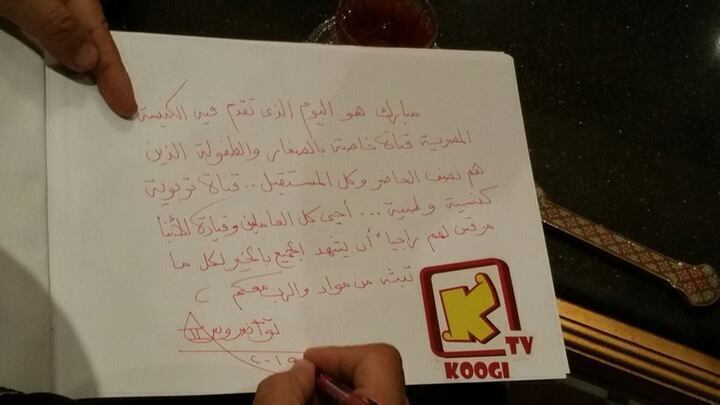 مبارك هو اليوم الذى تقدم فيه الكنيسة
المصرية قناة خاصة بالصغار والطفولة الذين
هم نصف الحاضر وكل المستقبل .. قناة تربوية
كنسية وطنية ... أحيى كل العاملين وقيادة الأنبا
مرقس لهم راجياً أن يشهد الجميع بالخير لكل ما
تبثه من مواد والرب معكم
تواضروس II
KOOGI TV